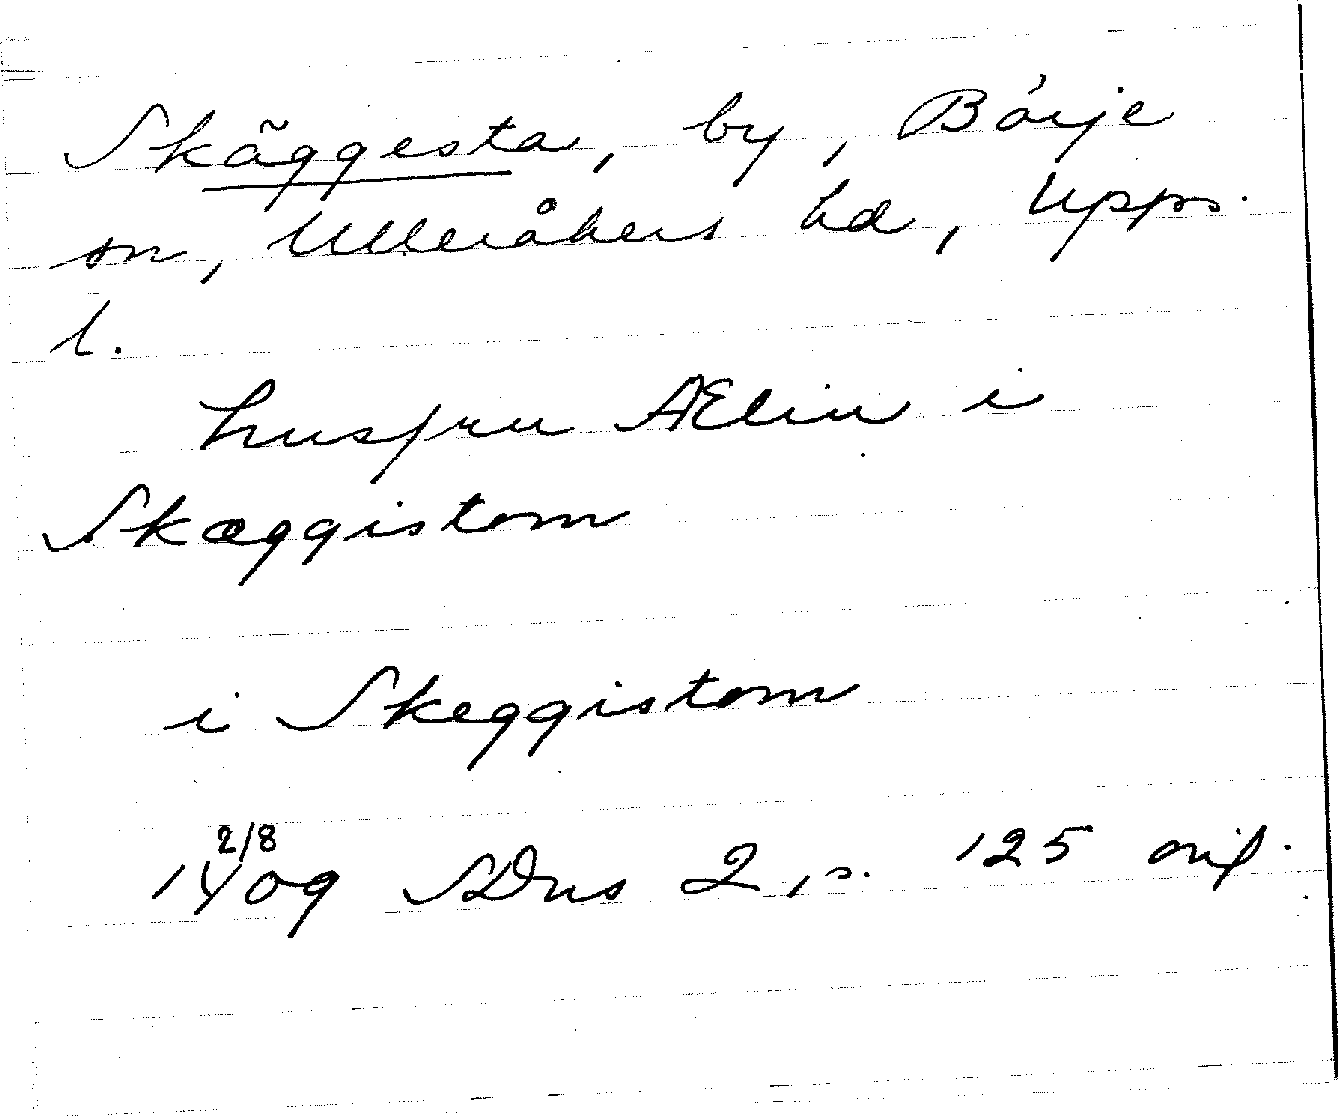 Skäggesta, by, Börje
sn, Ulleråkers hd, Upps.
l.
husfru Ælin i
Skæggistom
i Skeggistom
1409 2/8 SDns 2, s. 125 orig.